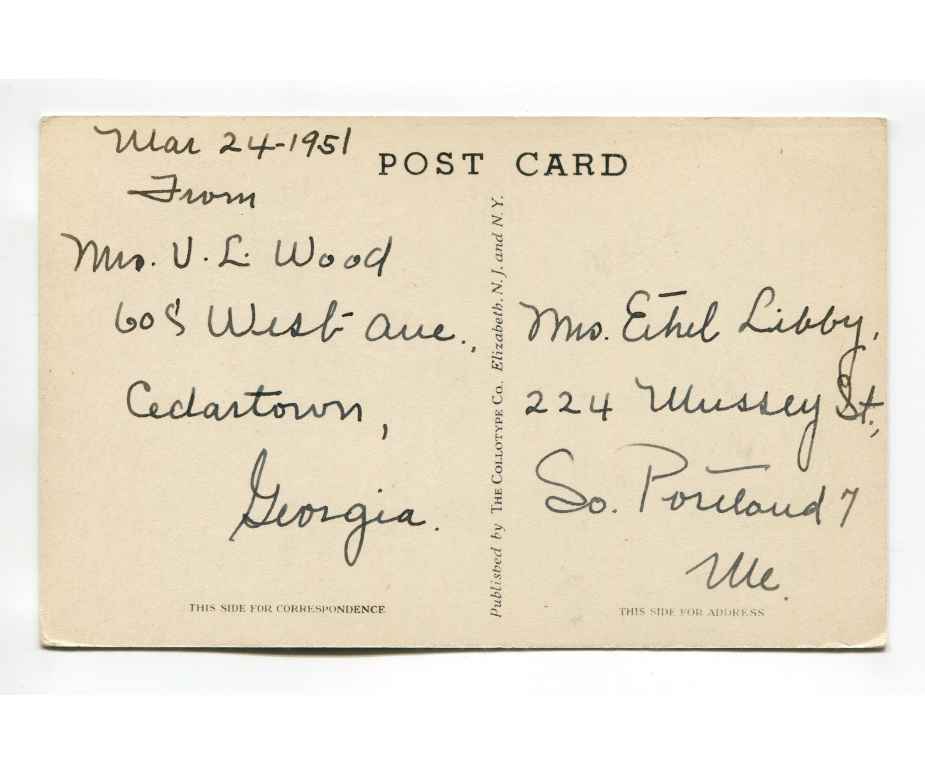 Mar 24-1951
From
Mrs. V. L. Wood
608 West Ave.,
Cedartown,
Georgia.
THIS SIDE FOR CORRESPONDENCE
POST CARD
Published by THE COLLOTYPE CO. Elizabeth, N. J. and N. Y.
Mrs. Ethel Libby,
224 Mussey St.,
So. Portland 7
Me.
THIS SIDE FOR ADDRESS